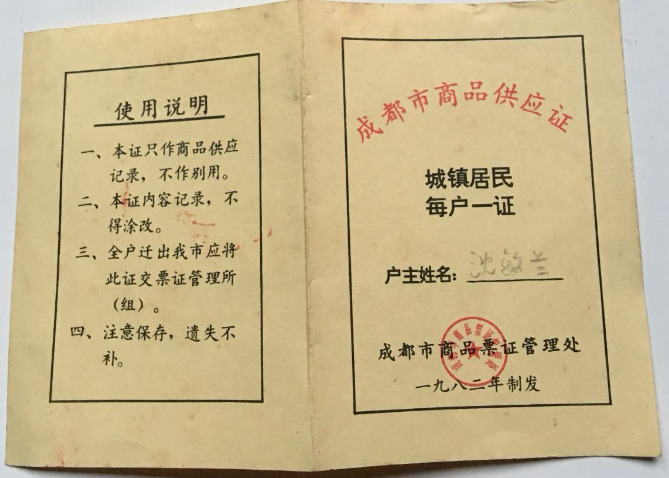 使用说明
一、本证只作商品供应
记录，不作别用。
二、本证内容记录，不
得涂改。
三、全户迁出我市应将
此证交票证管理所
（组）。
四、注意保存，遗失不
补。
成都市商品供应证
城镇居民
每户一证
户主姓名：沈敏兰
成都市商品票证管理处
一九八二年制发